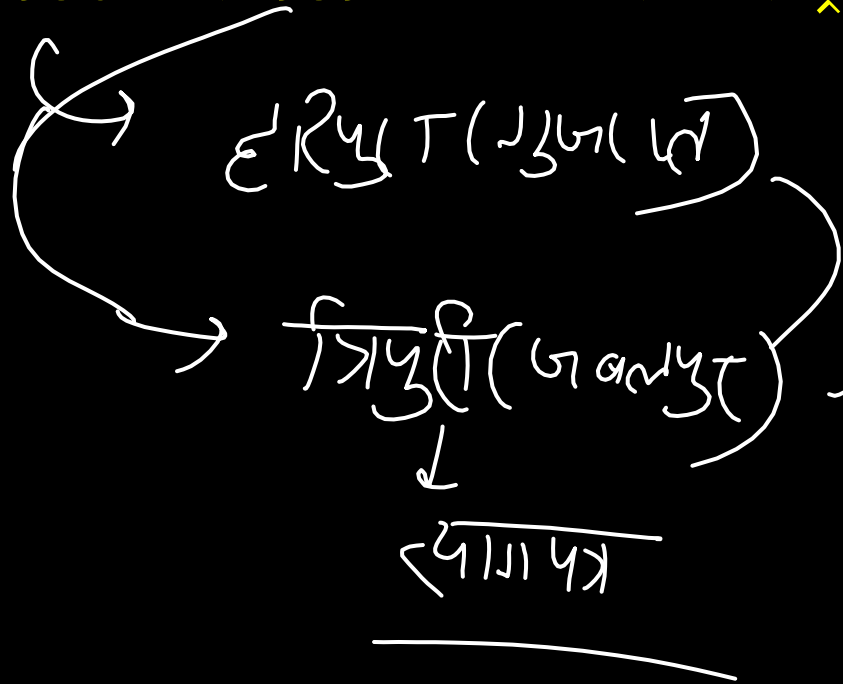 हरिपुरा (गुजरात)
त्रिपुरी (जबलपुर)
त्यागपत्र